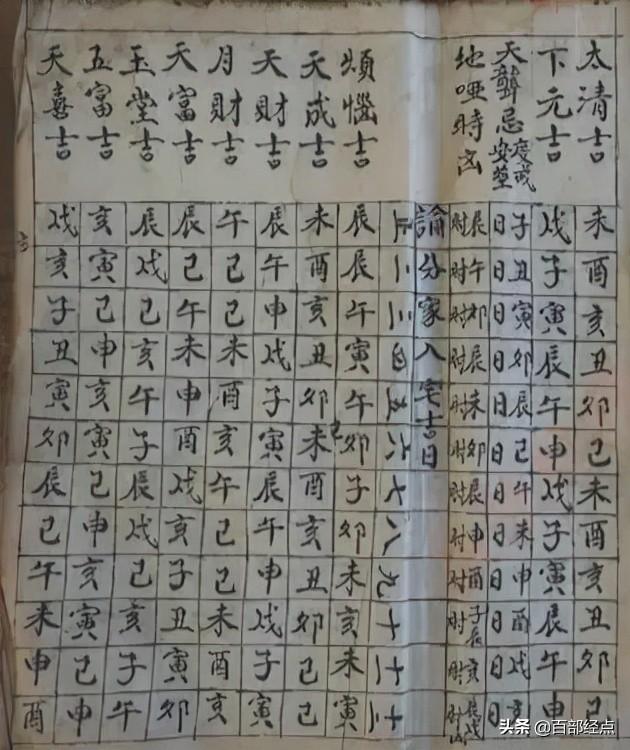 太清吉
未酉亥丑卯己未酉亥丑卯己
下元吉
戌子寅辰午申戌子寅辰午申
天聾忌
度戒
安葬
子日丑日寅日卯日辰日己日午日未日申日酉日戌日亥日
地哑時凶
辰时午时卯时辰时未时卯时辰时申时酉时子辰时亥时辰戌时凶
論分家入宅吉日
正二三四五六七八九十十一十二
煩惱吉
辰辰午寅午卯子卯未亥未寅
天成吉
未酉亥丑卯未己酉亥丑卯己己
天財吉
辰午申戌子寅辰午申戌子寅
月財吉
午己己未酉亥午己己未酉亥
天富吉
辰己午未申酉戌亥子丑寅卯
玉堂吉
辰戌己亥午子辰戌己亥子午
五富吉
亥寅己申亥寅己申亥寅己申
天喜吉
戌亥子丑寅卯辰己午未申酉
头条 @百部经点